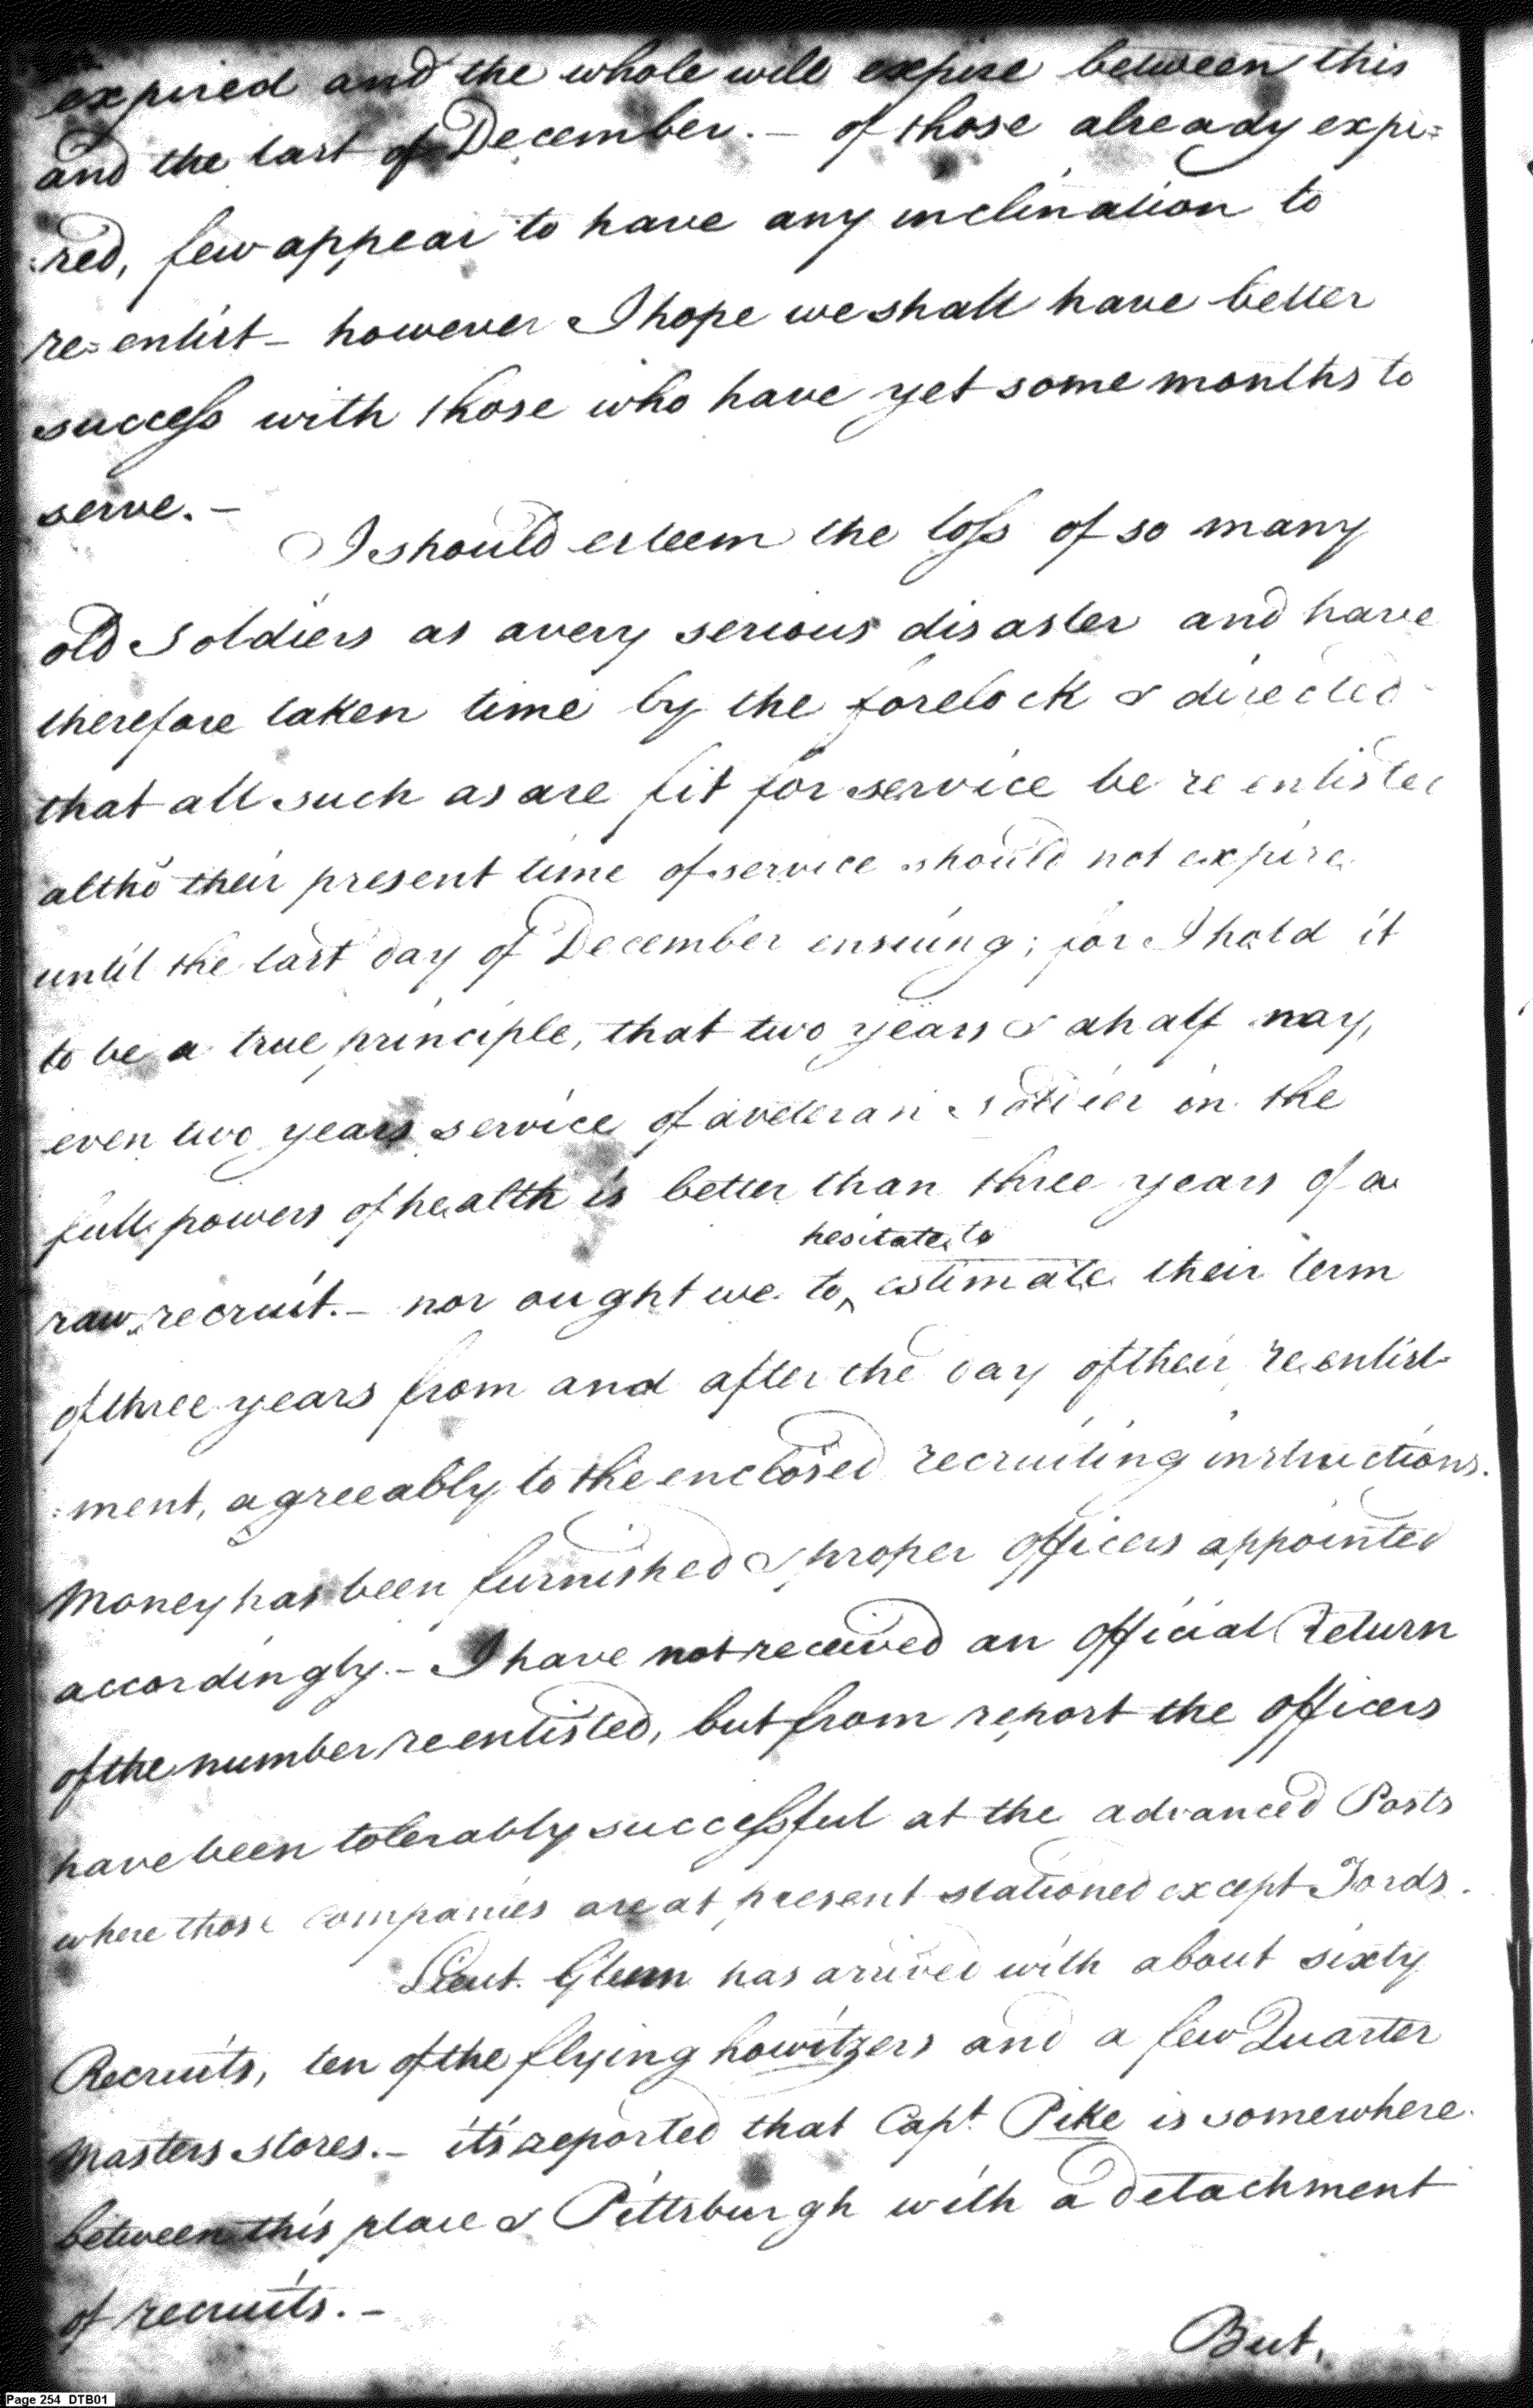 expired and the whole will expire between this
and the last of December. – of those already expi=
:red, few appear to have any inclination to
re=enlist – however I hope we shall have better
success with those who have yet some months to
serve. –
I should esteem the loss of so many
old Soldiers as a very serious disaster and have
therefore taken time by the forelock & directed
that all such as are fit for service be re enlisted
altho their present time of service should not expire
until the last day of December ensuing; for I hold it
to be a true principle, that two years & a half nay,
even two years service of a veteran soldier in the
full powers of health is better than three years of a
hesitate to
raw recruit. – nor ought we to ‸ estimate their term
of three years from and after the day of their re enlist-
:ment, agreeably to the enclosed recruiting instructions.
Money has been furnished & proper officers appointed
accordingly. – I have not received an official Return
of the number re enlisted, but from report the officers
have been tolerably successful at the advanced Posts
where those companies are at present stationed except Fords.
Lieut. Glenn has arrived with about sixty
Recruits, ten of the flying howitzers and a few Quarter
Masters stores. – it's reported that Capt. Pike is somewhere
between this place & Pittsburgh with a detachment
of recruits. –
But,
Page 254 DTB01